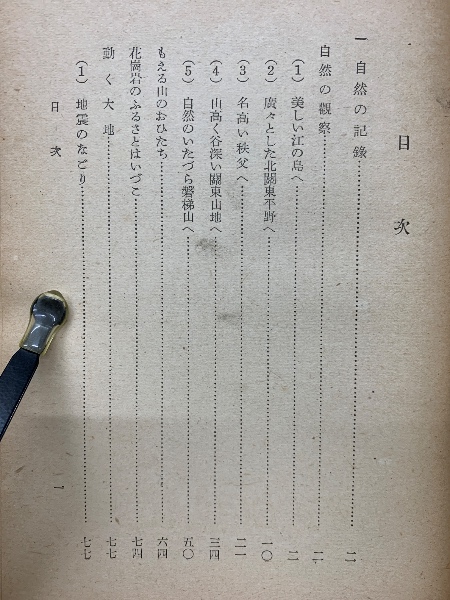 目次
一 自然の記錄……二
自然の觀察……二
(1) 美しい江の島へ……二
(2) 廣々とした北關東平野へ……一〇
(3) 名高い秩父へ……二一
(4) 山高く谷深い關東山地へ……三四
(5) 自然のいたづら磐梯山へ……五〇
もえる山のおひたち……六四
花崗岩のふるさとはいづこ……七四
動く大地……七七
(1) 地震のなごり……七七
目次 一